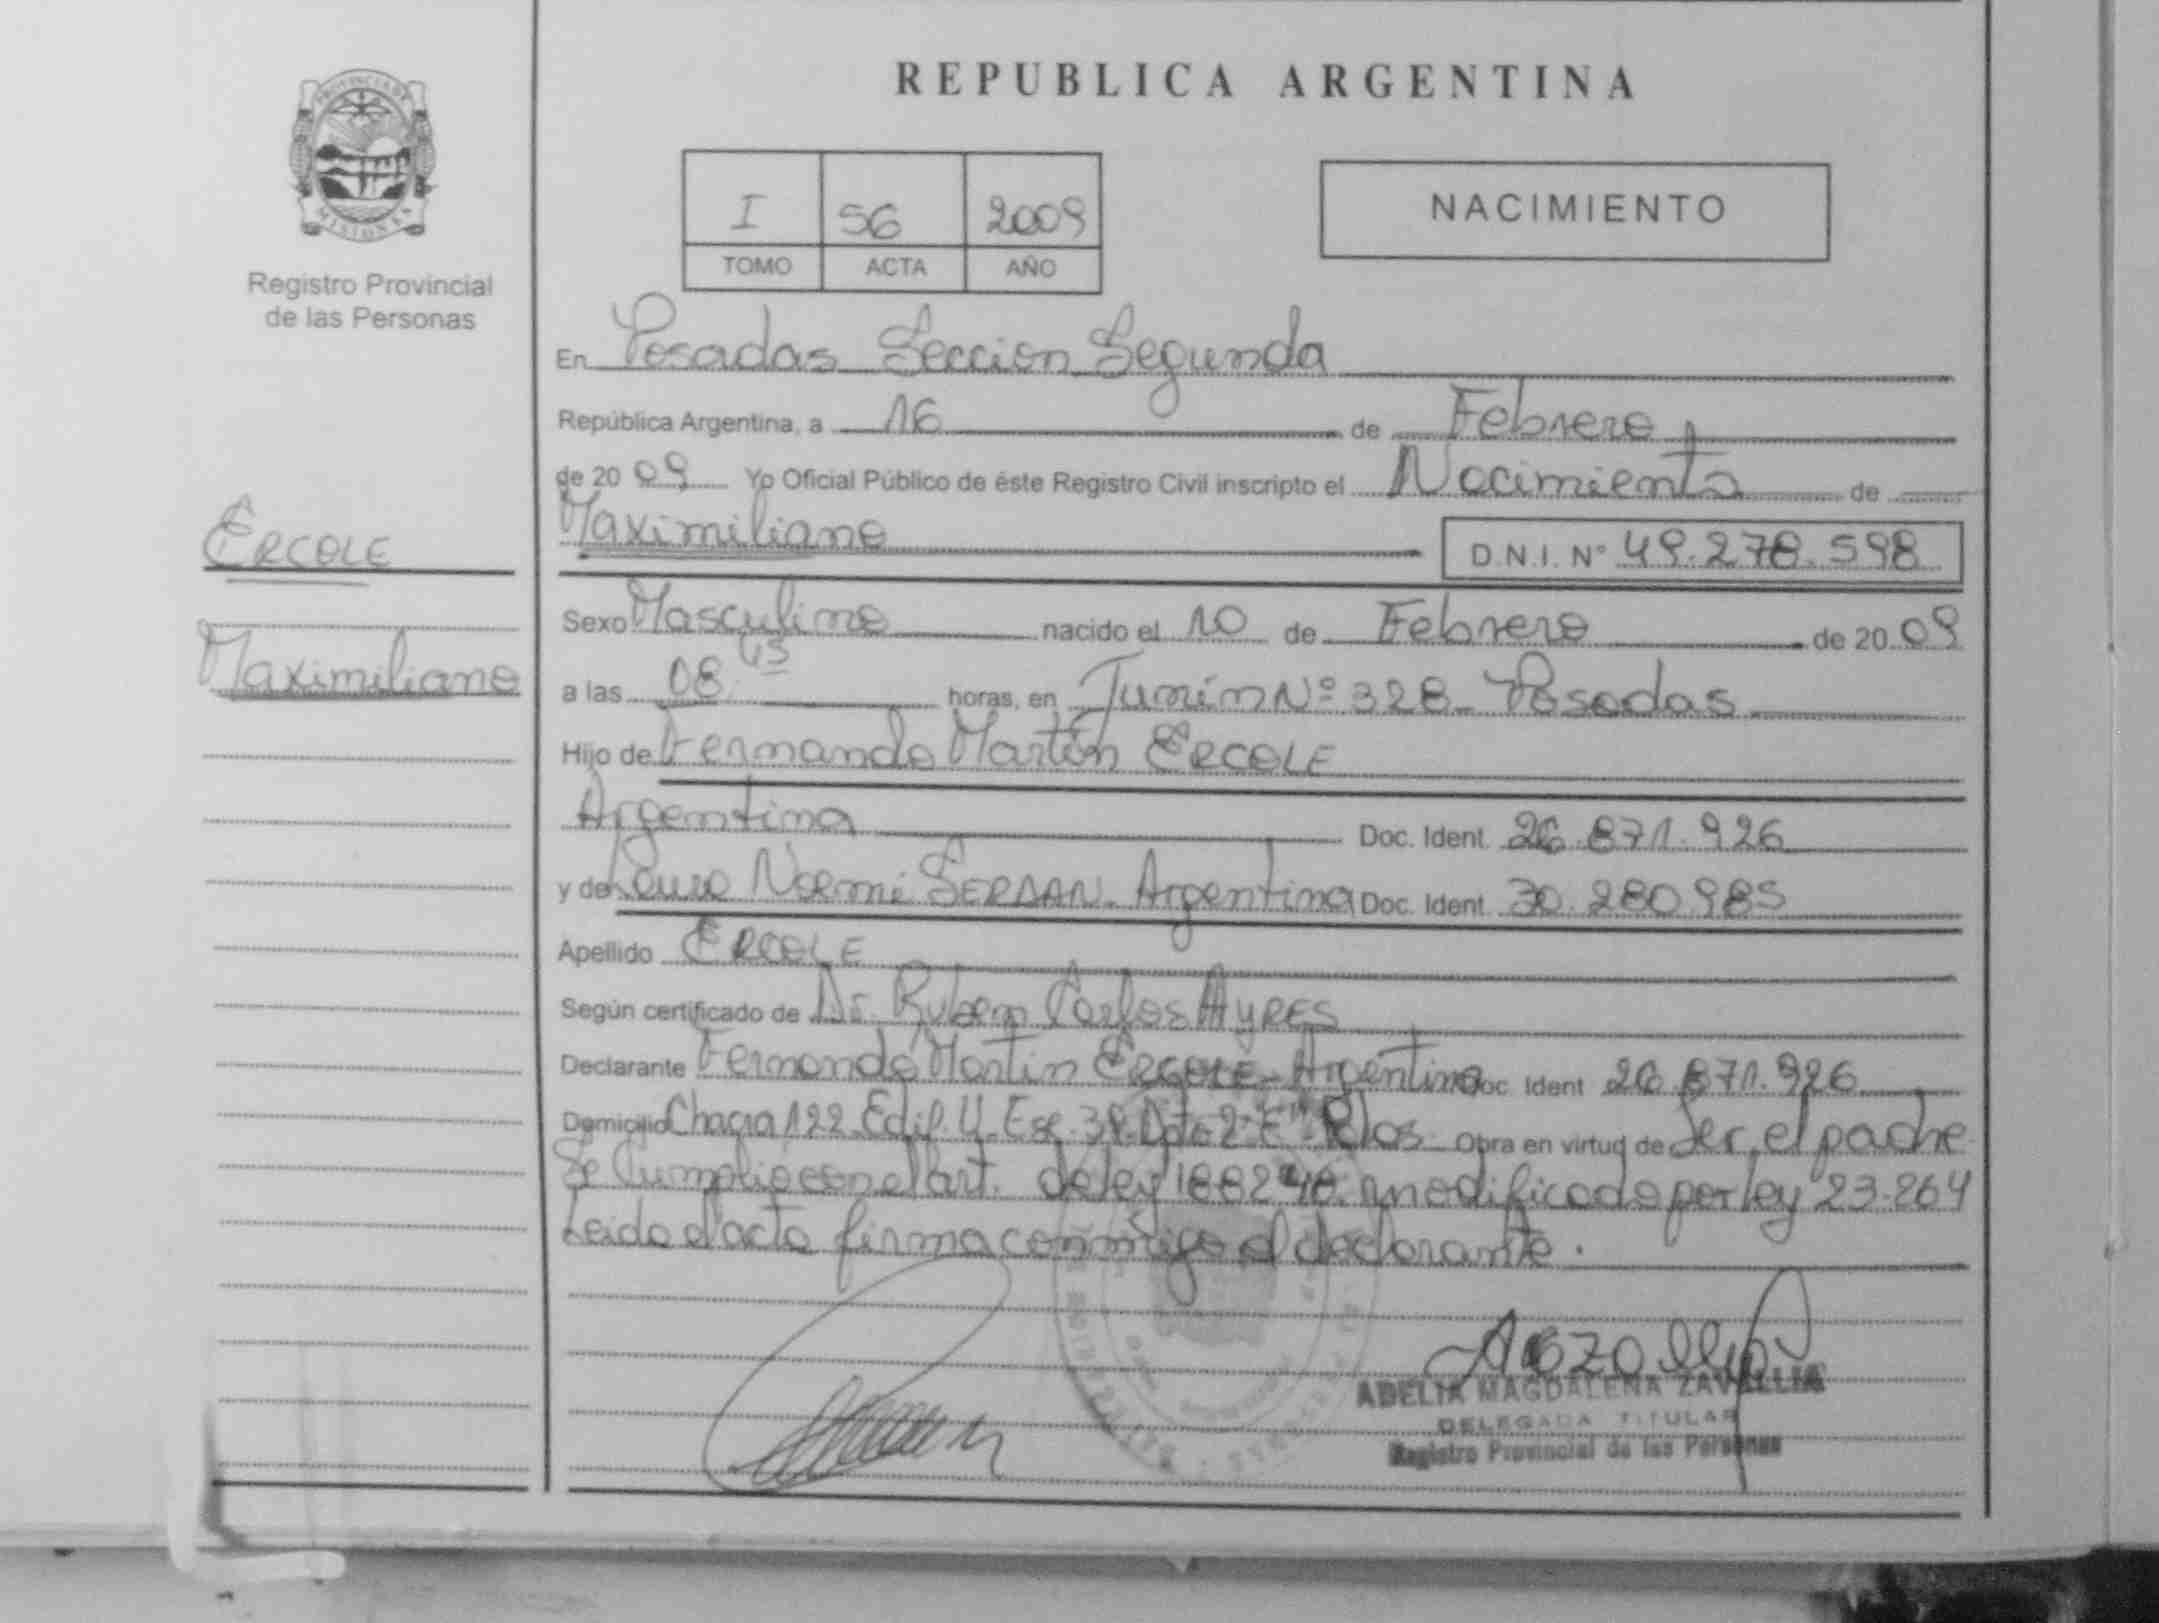 REPUBLICA ARGENTINA
PROVINCIA DE
MISIONES
Registro Provincial
de las Personas
I 56 2009
TOMO ACTA AÑO
NACIMIENTO
En Posadas Seccion Segunda
República Argentina, a 16 de Febrero
de 20 09 Yo Oficial Público de éste Registro Civil inscripto el Nacimiento de
ERCOLE
Maximiliano
Maximiliano D.N.I. Nº 49.278.598
Sexo Masculino nacido el 10 de Febrero de 20 09
a las 08 45 horas, en Junín Nº 328 Posadas
Hijo de Fernando Martín ERCOLE
Argentina Doc. Ident. 26.871.926
y de Noemí SERDAN. Argentina Doc. Ident. 30.280.985
Apellido ERCOLE
Según certificado de Dr. Ruben Carlos AYRES
Declarante Fernando Martin ERCOLE - Argentino Doc. Ident 26.871.926
Domicilio Chacra 122 Edif. 4 Esc. 38 Dpto 2º E" Pdas Obra en virtud de Ser el padre
Se Cumplió con el art. de ley 188248 modificado por ley 23.264
Leido el acta firma conmigo el declarante.
ADELIA MAGDALENA ZAVALLIA
DELEGADA TITULAR
Registro Provincial de las Personas